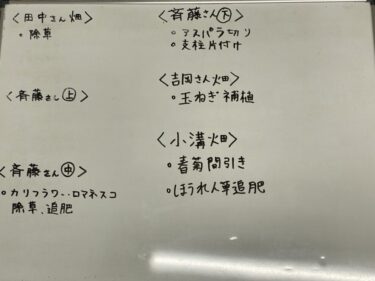 〈田中さん畑〉
◦除草
〈斉藤さん㊤〉
〈斉藤さん㊥〉
◦カリフラワー・ロマネスコ
除草、追肥
〈斉藤さん㊦〉
◦アスパラ切り
◦支柱片付け
〈吉岡さん畑〉
◦玉ねぎ補植
〈小溝畑〉
◦春菊間引き
◦ほうれん草追肥